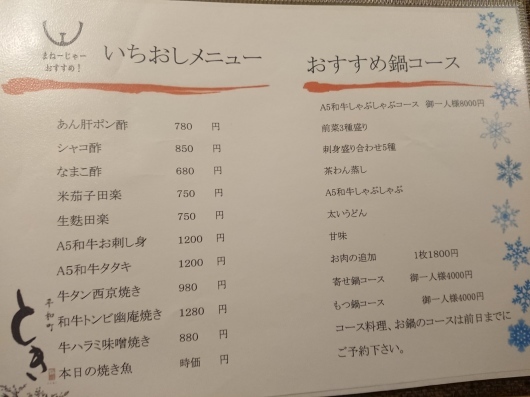 まねーじゃー
おすすめ!
いちおしメニュー
あん肝ポン酢 780 円
シャコ酢 850 円
なまこ酢 680 円
米茄子田楽 750 円
生麩田楽 750 円
A5和牛お刺し身 1200 円
A5和牛タタキ 1200 円
牛タン西京焼き 980 円
和牛トンビ幽庵焼き 1280 円
牛ハラミ味噌焼き 880 円
本日の焼き魚 時価 円
平和町
とき
おすすめ鍋コース
A5和牛しゃぶしゃぶコース 御一人様8000円
前菜3種盛り
刺身盛り合わせ5種
茶わん蒸し
A5和牛しゃぶしゃぶ
太いうどん
甘味
お肉の追加 1枚1800円
寄せ鍋コース 御一人様4000円
もつ鍋コース 御一人様4000円
コース料理、お鍋のコースは前日までに
ご予約下さい。